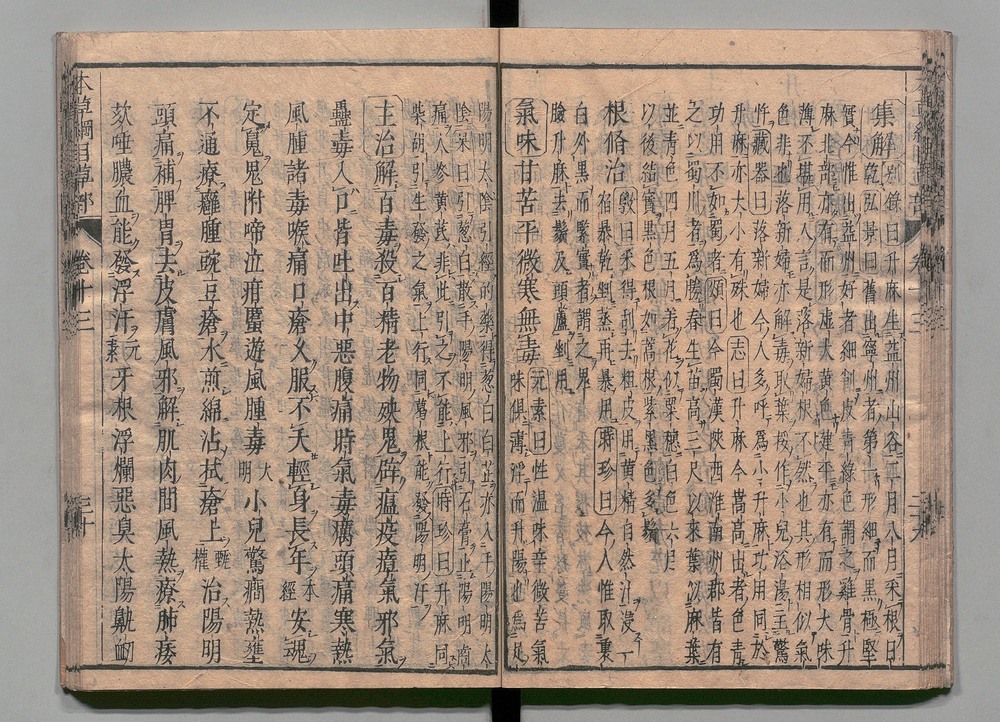 集解別錄曰升麻生益州山谷二月八月采根日
乾弘景曰舊出寧州者第一形細而黑極堅
實今惟出益州好者細削皮青綠色謂之雞骨升
麻北部亦有而形虛大黃色建平亦有而形大味
薄不堪用人言是落新婦根不然也其形相似氣
色非也落新婦亦解毒取葉挼作小兒浴湯主驚
忤藏器曰落新婦今人多呼為小升麻功用同於
升麻亦大小有殊也志曰升麻今嵩高出者色青
功用不如蜀者頌曰今蜀漢陝西淮南州郡皆有
之以蜀川者為勝春生苗高三尺以來葉似麻葉
並青色四月五月着花似粟穗白色六月
以後結實黑色根如蒿根紫黑色多鬚
根修治斅曰采得刮去粗皮用黃精自然汁浸一
宿暴乾剉蒸再暴用時珍曰今人惟取裏
白外黑而緊實者謂之鬼
臉升麻去鬚及頭蘆剉用
氣味甘苦平微寒無毒元素曰性溫味辛微苦氣
味俱薄浮而升陽也為足
陽明太陰引經的藥得葱白白芷亦入手陽明太
陰杲曰引葱白散手陽明風邪引石膏止陽明齒
痛人參黃芪非此引之不能上行時珍曰升麻同
柴胡引生發之氣上行同葛根能發陽明汗
主治解百毒殺百精老物殃鬼辟瘟疫瘴氣邪氣
蠱毒入口皆吐出中惡腹痛時氣毒癘頭痛寒熱
風腫諸毒喉痛口瘡久服不夭輕身長年本經安魂
定魄鬼附啼泣疳䘌遊風腫毒大明小兒驚癇熱壅
不通療癰腫豌豆瘡水煎綿沾拭瘡上甄權治陽明
頭痛補脾胃去皮膚風邪解肌肉間風熱療肺痿
欬唾膿血能發浮汗元素牙根浮爛惡臭太陽鼽衂
本草綱目草部
卷十三
三十